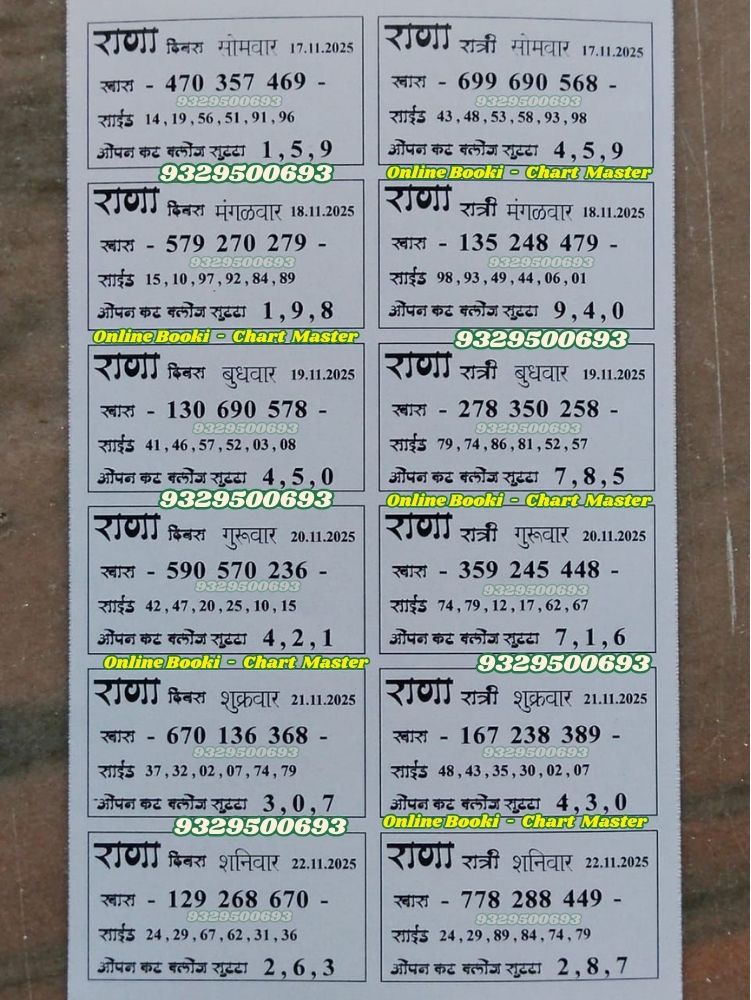 राणा दिवस सोमवार 17.11.2025
खास - 470 357 469 -
9329500693
साईड 14,19,56,51,91,96
ओपन कट क्लोज सुट्टा 1,5,9
9329500693
राणा रात्री सोमवार 17.11.2025
खास - 699 690 568 -
9329500693
साईड 43,48,53,58,93,98
ओपन कट क्लोज सुट्टा 4,5,9
Online Booki - Chart Master
राणा दिवस मंगळवार 18.11.2025
खास - 579 270 279 -
9329500693
साईड 15,10,97,92,84,89
ओपन कट क्लोज सुट्टा 1,9,8
Online Booki - Chart Master
राणा रात्री मंगळवार 18.11.2025
खास - 135 248 479 -
9329500693
साईड 98,93,49,44,06,01
ओपन कट क्लोज सुट्टा 9,4,0
9329500693
राणा दिवस बुधवार 19.11.2025
खास - 130 690 578 -
9329500693
साईड 41,46,57,52,03,08
ओपन कट क्लोज सुट्टा 4,5,0
9329500693
राणा रात्री बुधवार 19.11.2025
खास - 278 350 258 -
9329500693
साईड 79,74,86,81,52,57
ओपन कट क्लोज सुट्टा 7,8,5
Online Booki - Chart Master
राणा दिवस गुरूवार 20.11.2025
खास - 590 570 236 -
9329500693
साईड 42,47,20,25,10,15
ओपन कट क्लोज सुट्टा 4,2,1
Online Booki - Chart Master
राणा रात्री गुरूवार 20.11.2025
खास - 359 245 448 -
9329500693
साईड 74,79,12,17,62,67
ओपन कट क्लोज सुट्टा 7,1,6
9329500693
राणा दिवस शुक्रवार 21.11.2025
खास - 670 136 368 -
9329500693
साईड 37,32,02,07,74,79
ओपन कट क्लोज सुट्टा 3,0,7
9329500693
राणा रात्री शुक्रवार 21.11.2025
खास - 167 238 389 -
9329500693
साईड 48,43,35,30,02,07
ओपन कट क्लोज सुट्टा 4,3,0
Online Booki - Chart Master
राणा दिवस शनिवार 22.11.2025
खास - 129 268 670 -
9329500693
साईड 24,29,67,62,31,36
ओपन कट क्लोज सुट्टा 2,6,3
राणा रात्री शनिवार 22.11.2025
खास - 778 288 449 -
9329500693
साईड 24,29,89,84,74,79
ओपन कट क्लोज सुट्टा 2,8,7